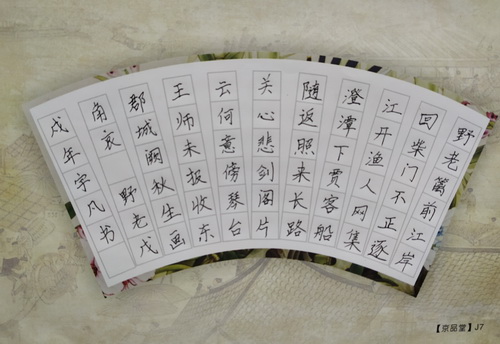 野老篱前江岸
回柴门不正逐
江开渔人网集
澄潭下贾客船
随返照来长路
关心悲剑阁片
云何意傍琴台
王师未报收东
郡城阙秋生画
角哀 野老戊
戌年宇凡书
【京品堂】J7